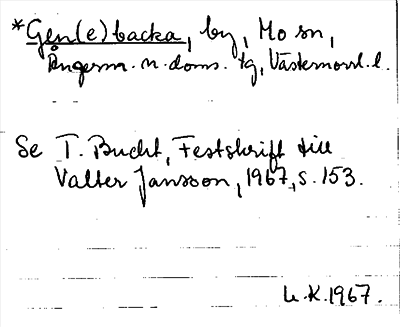 *Gen(e)backa, by, Mo sn,
Ångerm. n. doms. tg, Västernorrl. l.
Se T. Bucht, Festskrift till
Valter Jansson, 1967, s. 153.
L.K. 1967.